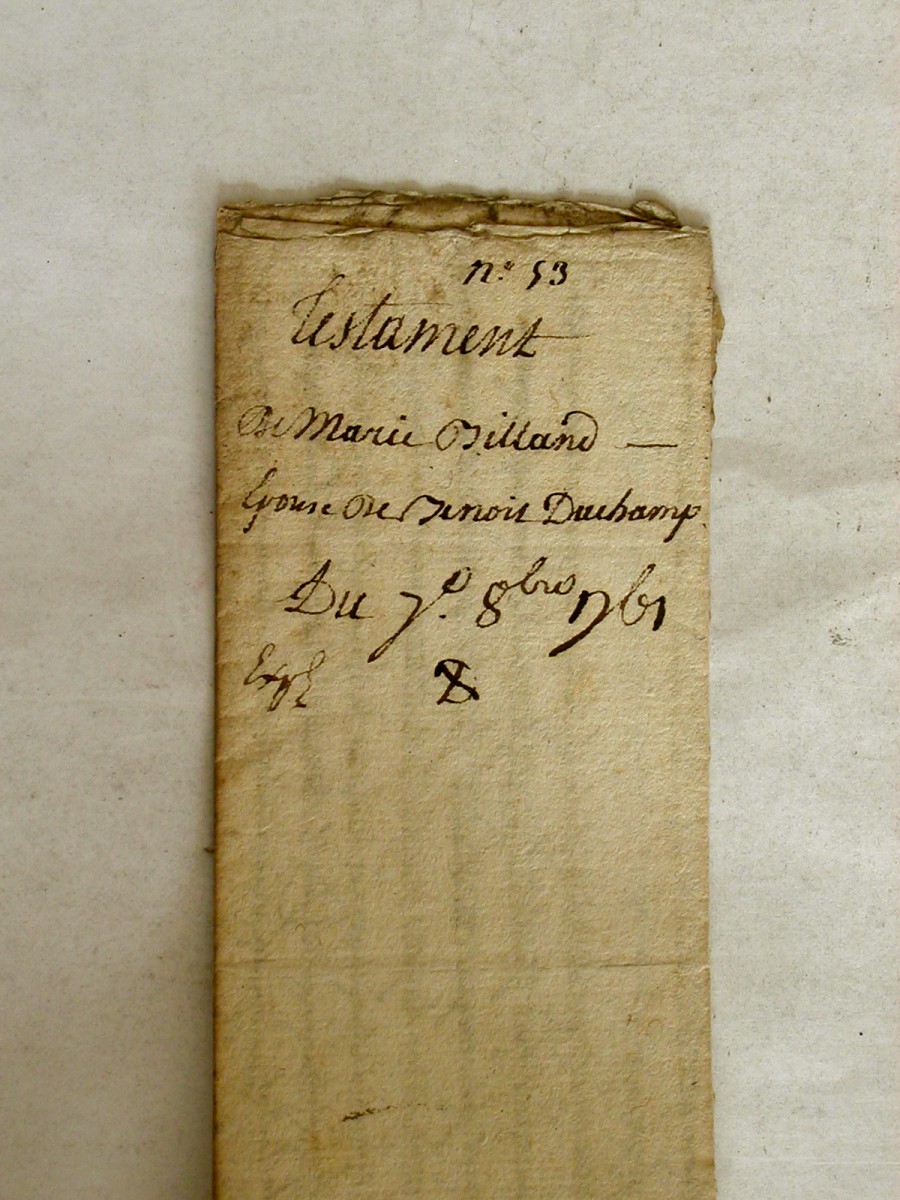 n.o 53
Testament
De Marie Billand —
Epouse De Benoit Duchamp
Du 7.e 8bre 1761